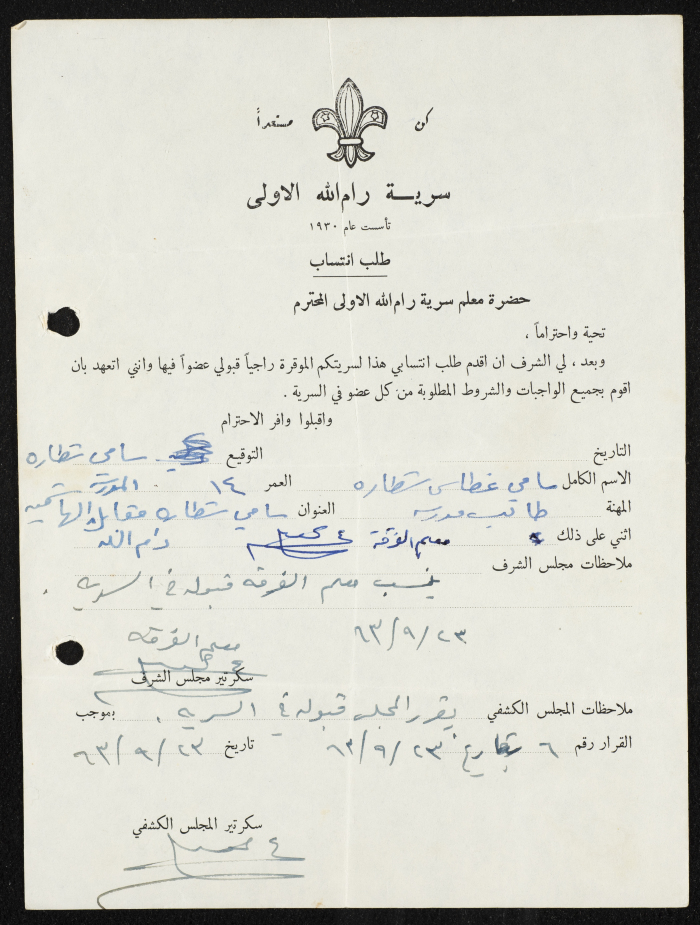 كن مستعداً
سرية رام الله الاولى
تأسست عام ١٩٣٠
طلب انتساب
حضرة معلم سرية رام الله الاولى المحترم
تحية واحتراماً ،
وبعد ، لي الشرف ان اقدم طلب انتسابي هذا لسريتكم الموقرة راجياً قبولي عضواً فيها وانني اتعهد بان
اقوم بجميع الواجبات والشروط المطلوبة من كل عضو في السرية .
واقبلوا وافر الاحترام
التاريخ التوقيع سامي شطاره
الاسم الكامل سامي غطاس شطاره العمر ١٤
المهنة طالب مدرسه العنوان سامي شطاره مقابل المدرسة الهاشميه
اثني على ذلك معلم الفرقة رام الله
ملاحظات مجلس الشرف
ينسب معلم الفرقه قبوله في السريه .
٦٣/٩/٢٣
معلم الفرقه
سكرتير مجلس الشرف
ملاحظات المجلس الكشفي يقرر المجلس قبوله في السريه . بموجب
القرار رقم ٦ بتاريخ ٦٣/٩/٢٣ تاريخ ٦٣/٩/٢٣
سكرتير المجلس الكشفي